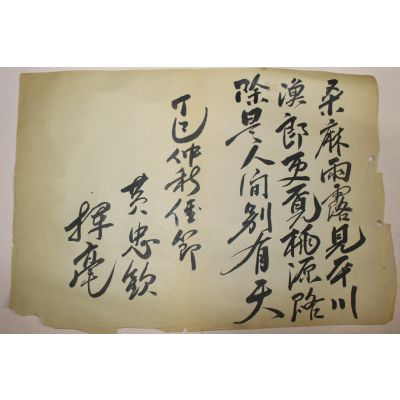 桑麻雨露見平川
漁郎更覓桃源路
除是人间別有天
丁巳仲秋佳節
黄忠欽
揮毫